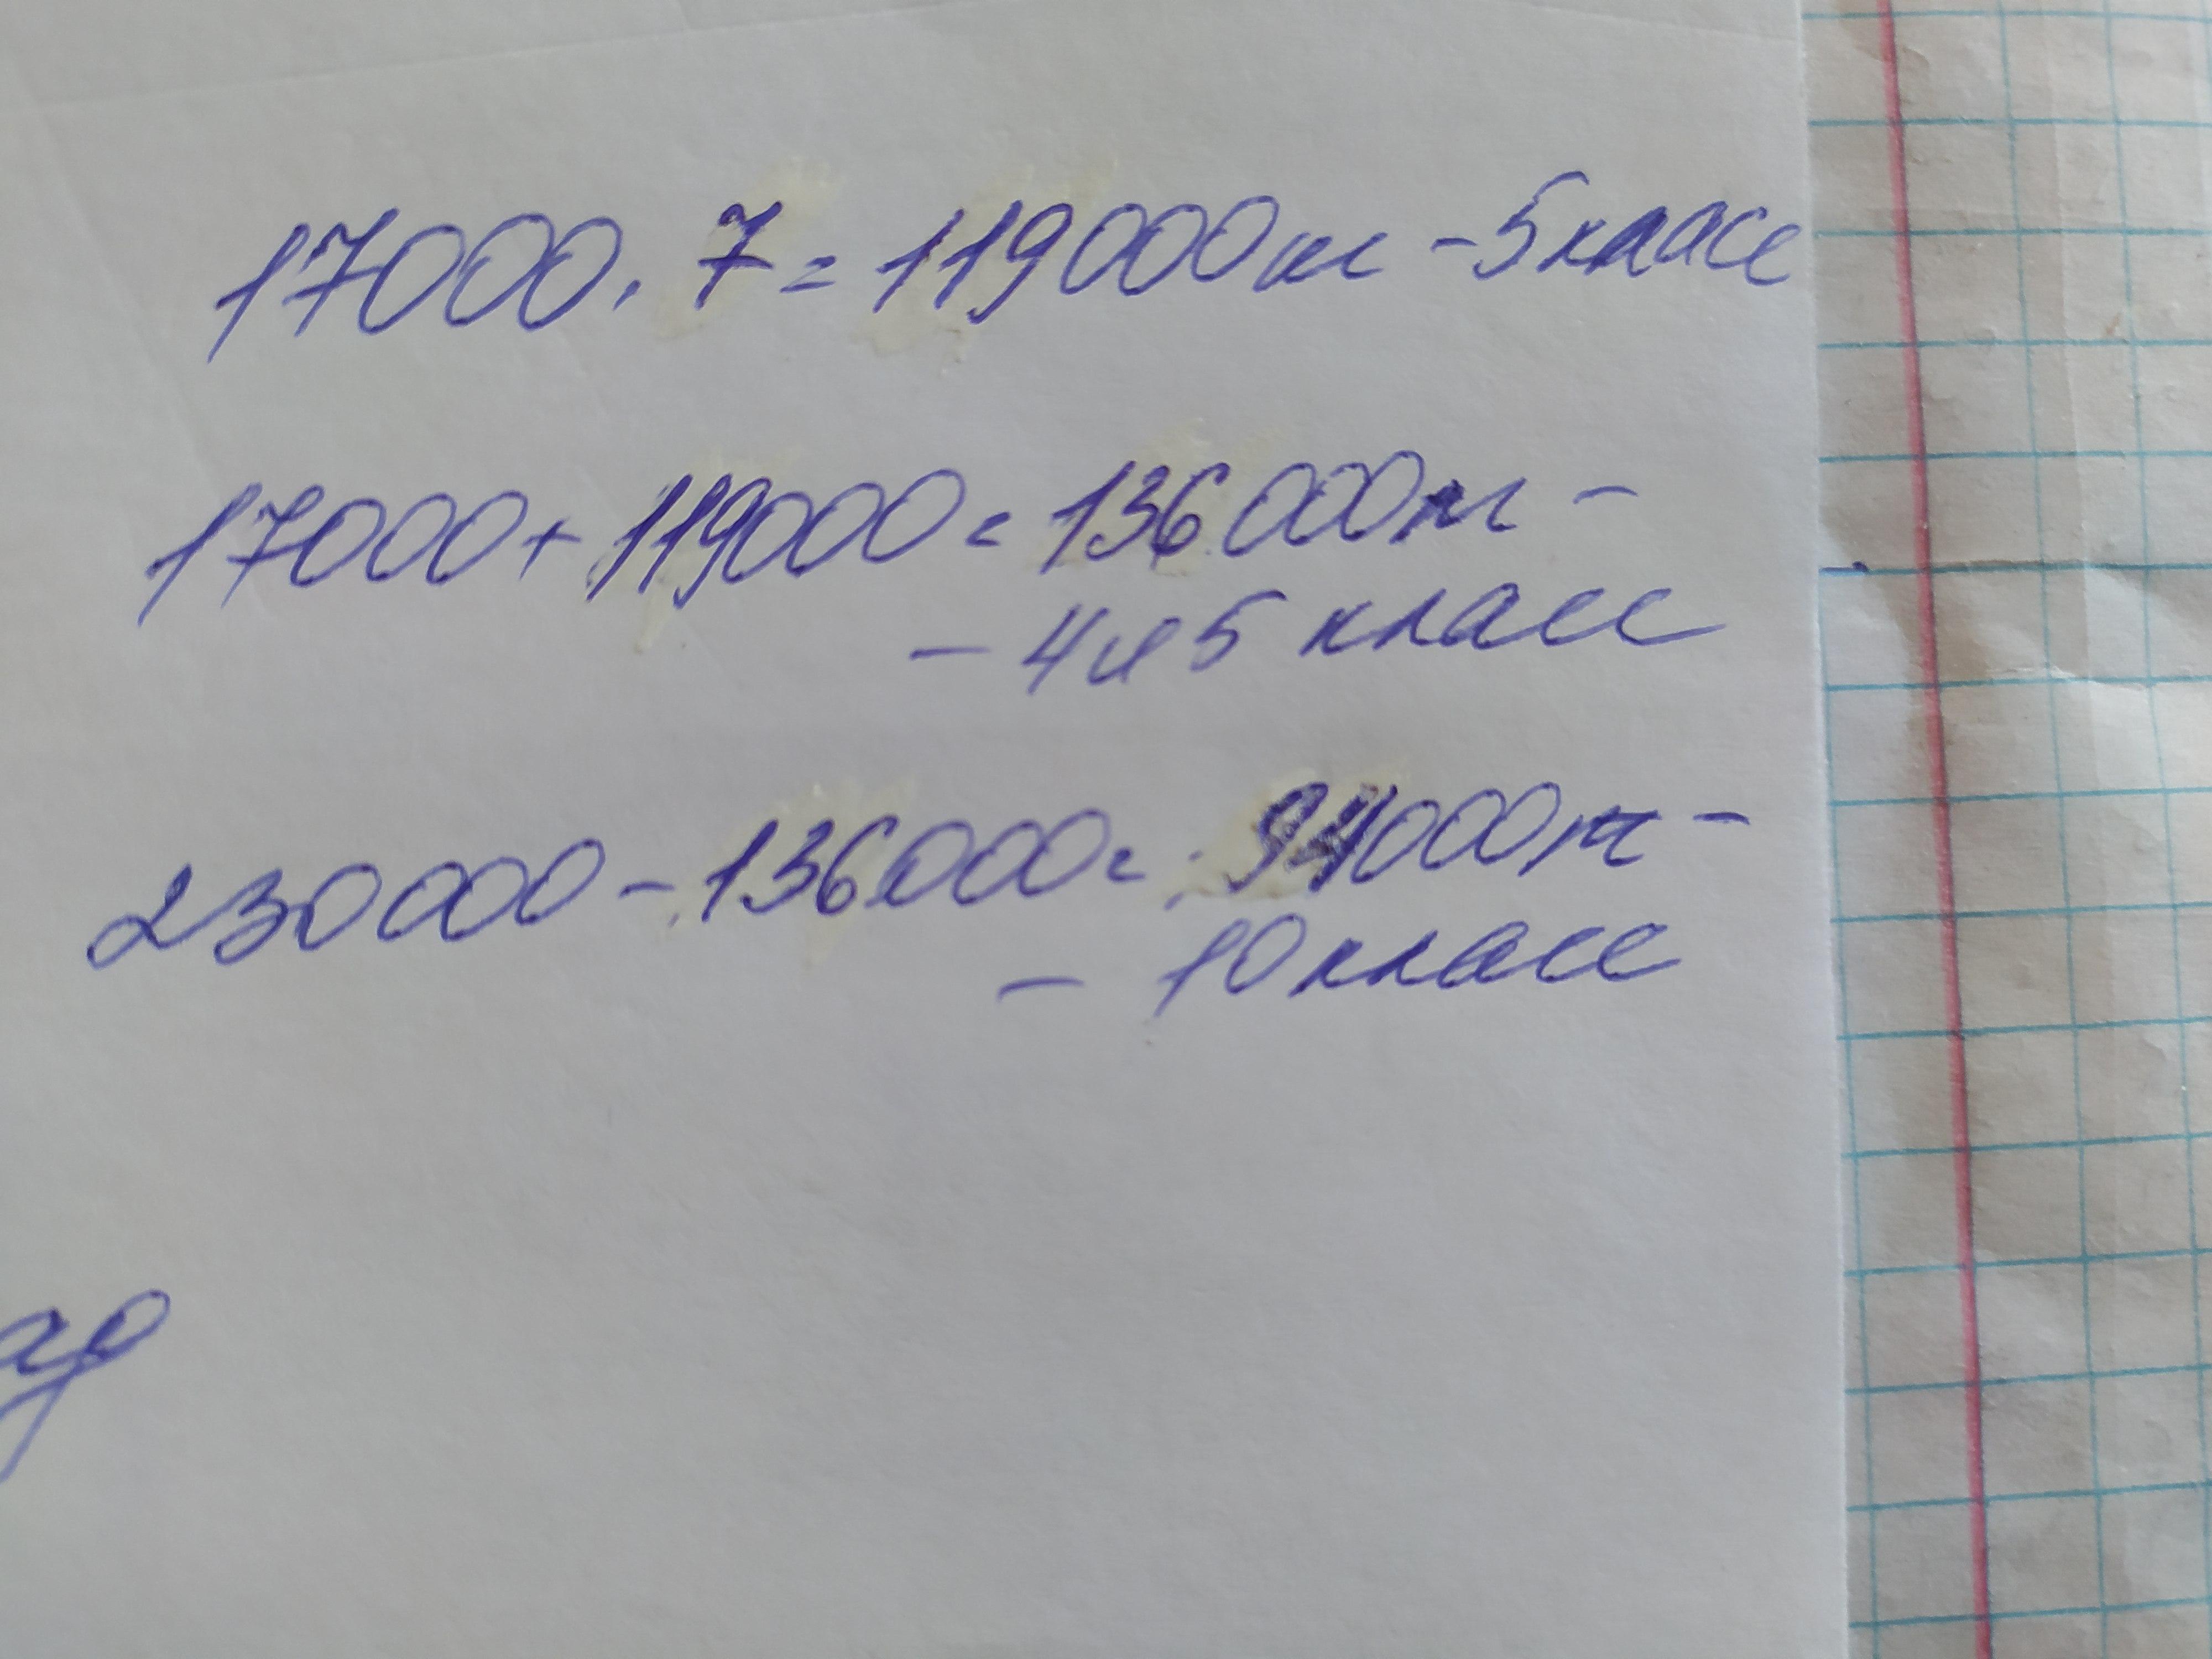 17000 · 7 = 119000 кг - 5 класс
17000 + 119000 = 136000 кг -
- 4 и 5 класс
230000 - 136000 = 94000 кг -
- 10 класс